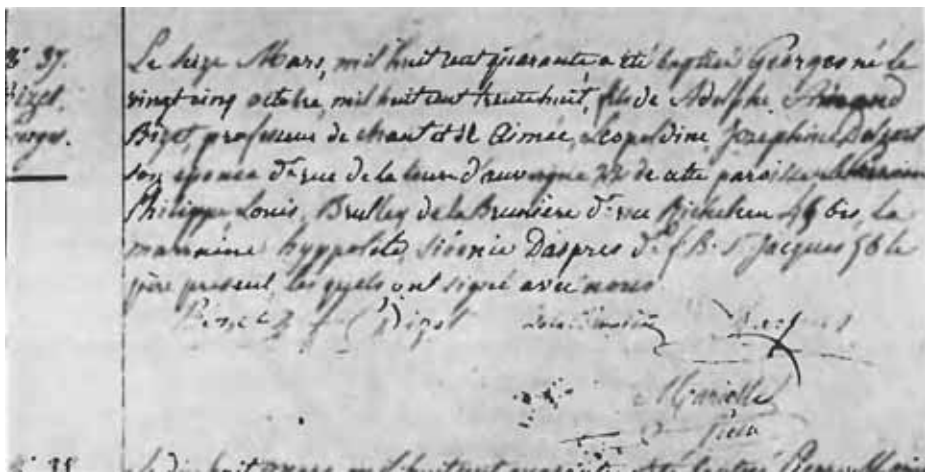 N° 37.
Bizet.
Georges.
Le seize Mars, mil huit cent quarante a été baptisé Georges né le
vingt cinq octobre, mil huit cent trente huit, fils de Adolphe Armand
Bizet, professeur de chant et de Aimée, Léopoldine, Joséphine Delsart
son épouse d.t rue de la tour d'auvergne 22 de cette paroisse le parrain
Philippe Louis, Brulley de la Brunière d.t rue Richelieu 46 bis, La
marraine hyppolite, Sidonie Daspres d.t f B. St Jacques 58 le
père présent, les quels ont signé avec nous
Bizet
N° 38
Le dix huit mars mil huit cent quarante a été baptisé Pierre